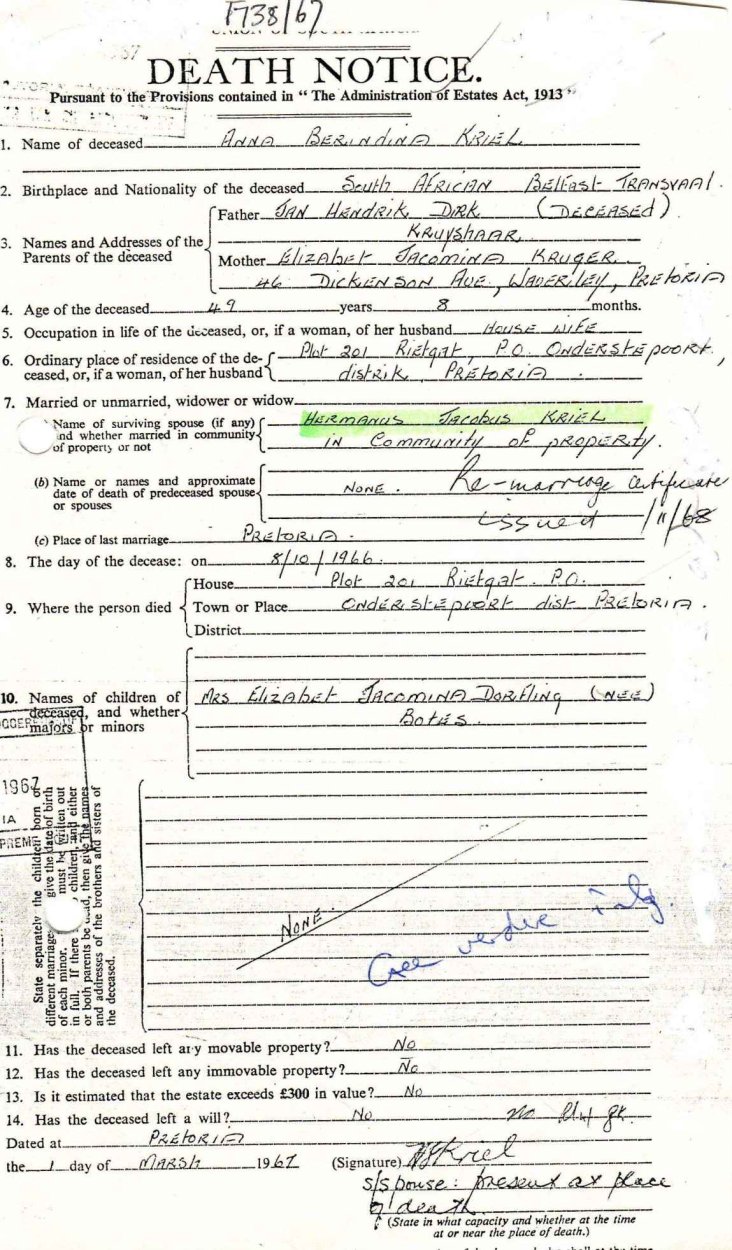 1738/67
UNION OF SOUTH AFRICA
DEATH NOTICE.
Pursuant to the Provisions contained in "The Administration of Estates Act, 1913"
1. Name of deceased ANNA BERINDINA KRIEL
2. Birthplace and Nationality of the deceased South AFRICAN Belfast TRANSVAAL.
3. Names and Addresses of the Parents of the deceased
Father JAN HENDRIK DIRK (DECEASED)
KRUYSHAAR
Mother ELIZABET JACOMINA KRUGER
46 DICKENSON AVE, WAVERLEY, PRETORIA
4. Age of the deceased 49 years 8 months.
5. Occupation in life of the deceased, or, if a woman, of her husband HOUSE WIFE
6. Ordinary place of residence of the de-
ceased, or, if a woman, of her husband
Plot 201 RIETGAT, P.O. ONDERSTEPOORT,
distrik, PRETORIA.
7. Married or unmarried, widower or widow
Name of surviving spouse (if any)
and whether married in community
of property or not
HERMANUS JACOBUS KRIEL
IN COMMUNITY OF PROPERTY.
(b) Name or names and approximate
date of death of predeceased spouse
or spouses
NONE.
Re-marriage certificate
issued 1/11/68
(c) Place of last marriage PRETORIA.
8. The day of the decease: on 8/10/1966.
9. Where the person died
House Plot 201 RIETGAT. P.O.
Town or Place ONDERSTEPOORT dist PRETORIA.
District
10. Names of children of
deceased, and whether
majors or minors
MRS ELIZABET JACOMINA DORFLING (NEE)
BOTES.
1967
IA
State separately the children born of
different marriage give the date of birth
of each minor. must be written out
in full. If there children, and either
or both parents be dead, then give the names
and addresses of the brothers and sisters of
the deceased.
NONE.
Geen verdere
11. Has the deceased left any movable property? No
12. Has the deceased left any immovable property? No
13. Is it estimated that the estate exceeds £300 in value? No
14. Has the deceased left a will? No
Dated at PRETORIA
the 1 day of MARSH 1967 (Signature) HJKriel
s/spouse: present at place
of death
(State in what capacity and whether at the time
at or near the place of death.)